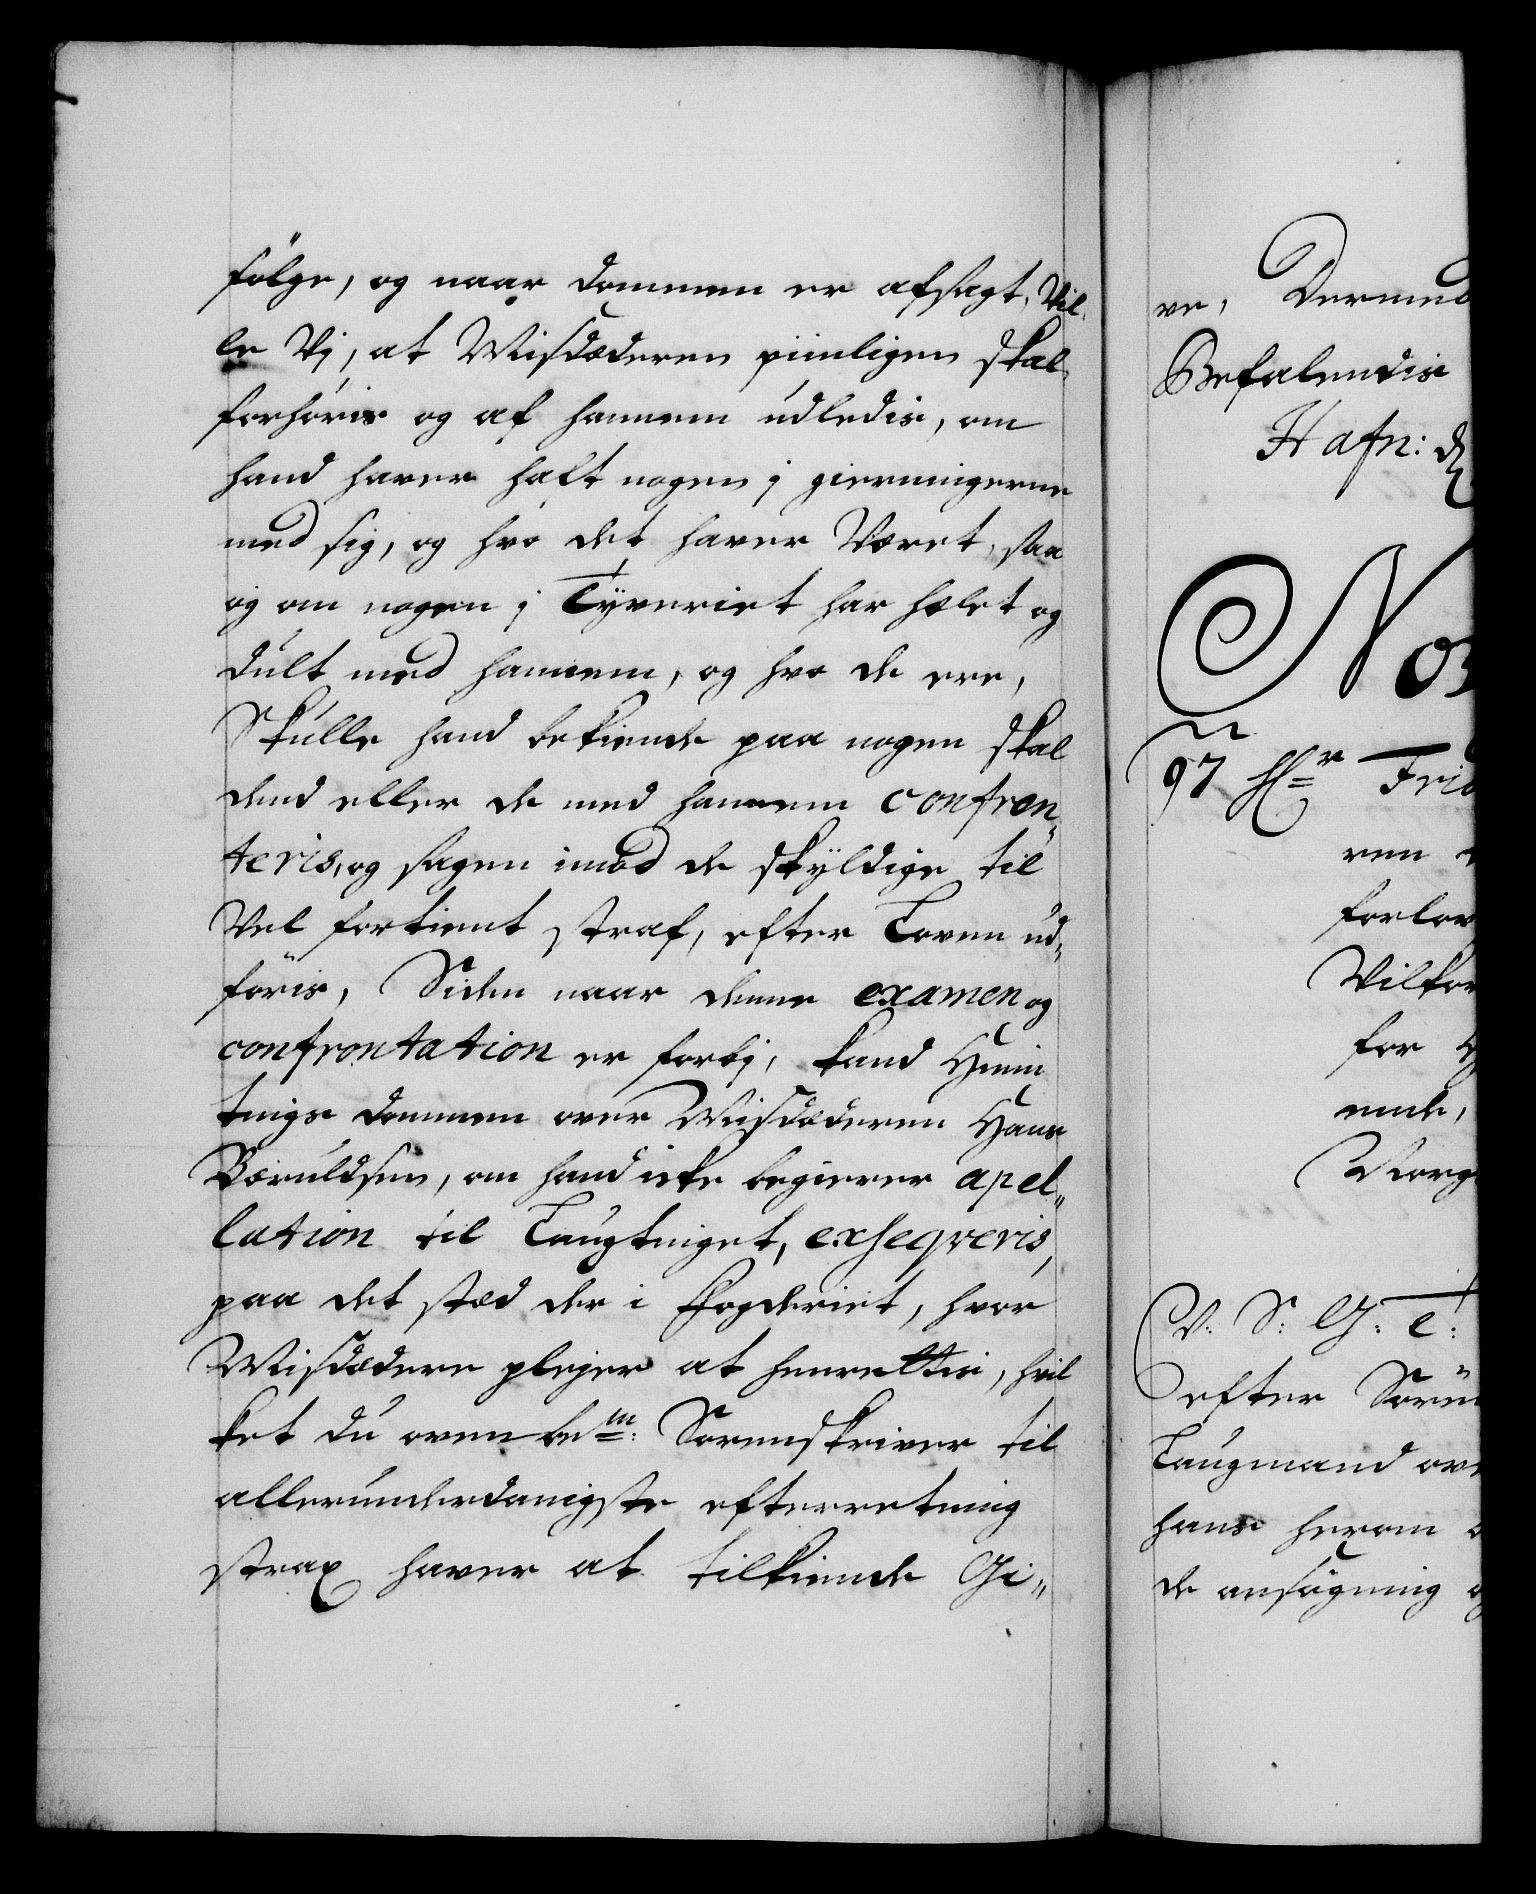 følge, og naar dommen er afsagt, Vil-
le Vj, at Misdæderen piinligen skal
forhøris og af hannem udledis, om
hand haver haft nogen i gierningerne
med sig, og hvo det haver Været, saa
og om nogen i Tyveriet har hælet og
dult med hannem, og hvo de ere,
Skulle hand bekiende paa nogen skal
dend eller de med hannem confron„
teris, og sagen imod de skyldige til
Vel fortient straf, efter Loven ud„
føris, Siden naar denne examen og
confrontation er forbj, kand Hiem
tings dommen over Misdæderen Hans
om hand icke begierer apel„
lation til Laugtinget, exseqveris,
paa det stæd der i Fogderiet, hvor
Misdædere plejer at henrettis, hvil
ket du ovenbem: Sorenskriver til
allerunderdanigste efterretning
strax haver at tilkiende Gi„
ve, Dermed
Befalendis
Hafn: d
No
97 Hr Frid
ren
forlov
Vilkor
for
ende,
Norg
V: S: G: T:
efter Søren
Laugmand ove
hans herom
de ansøgning